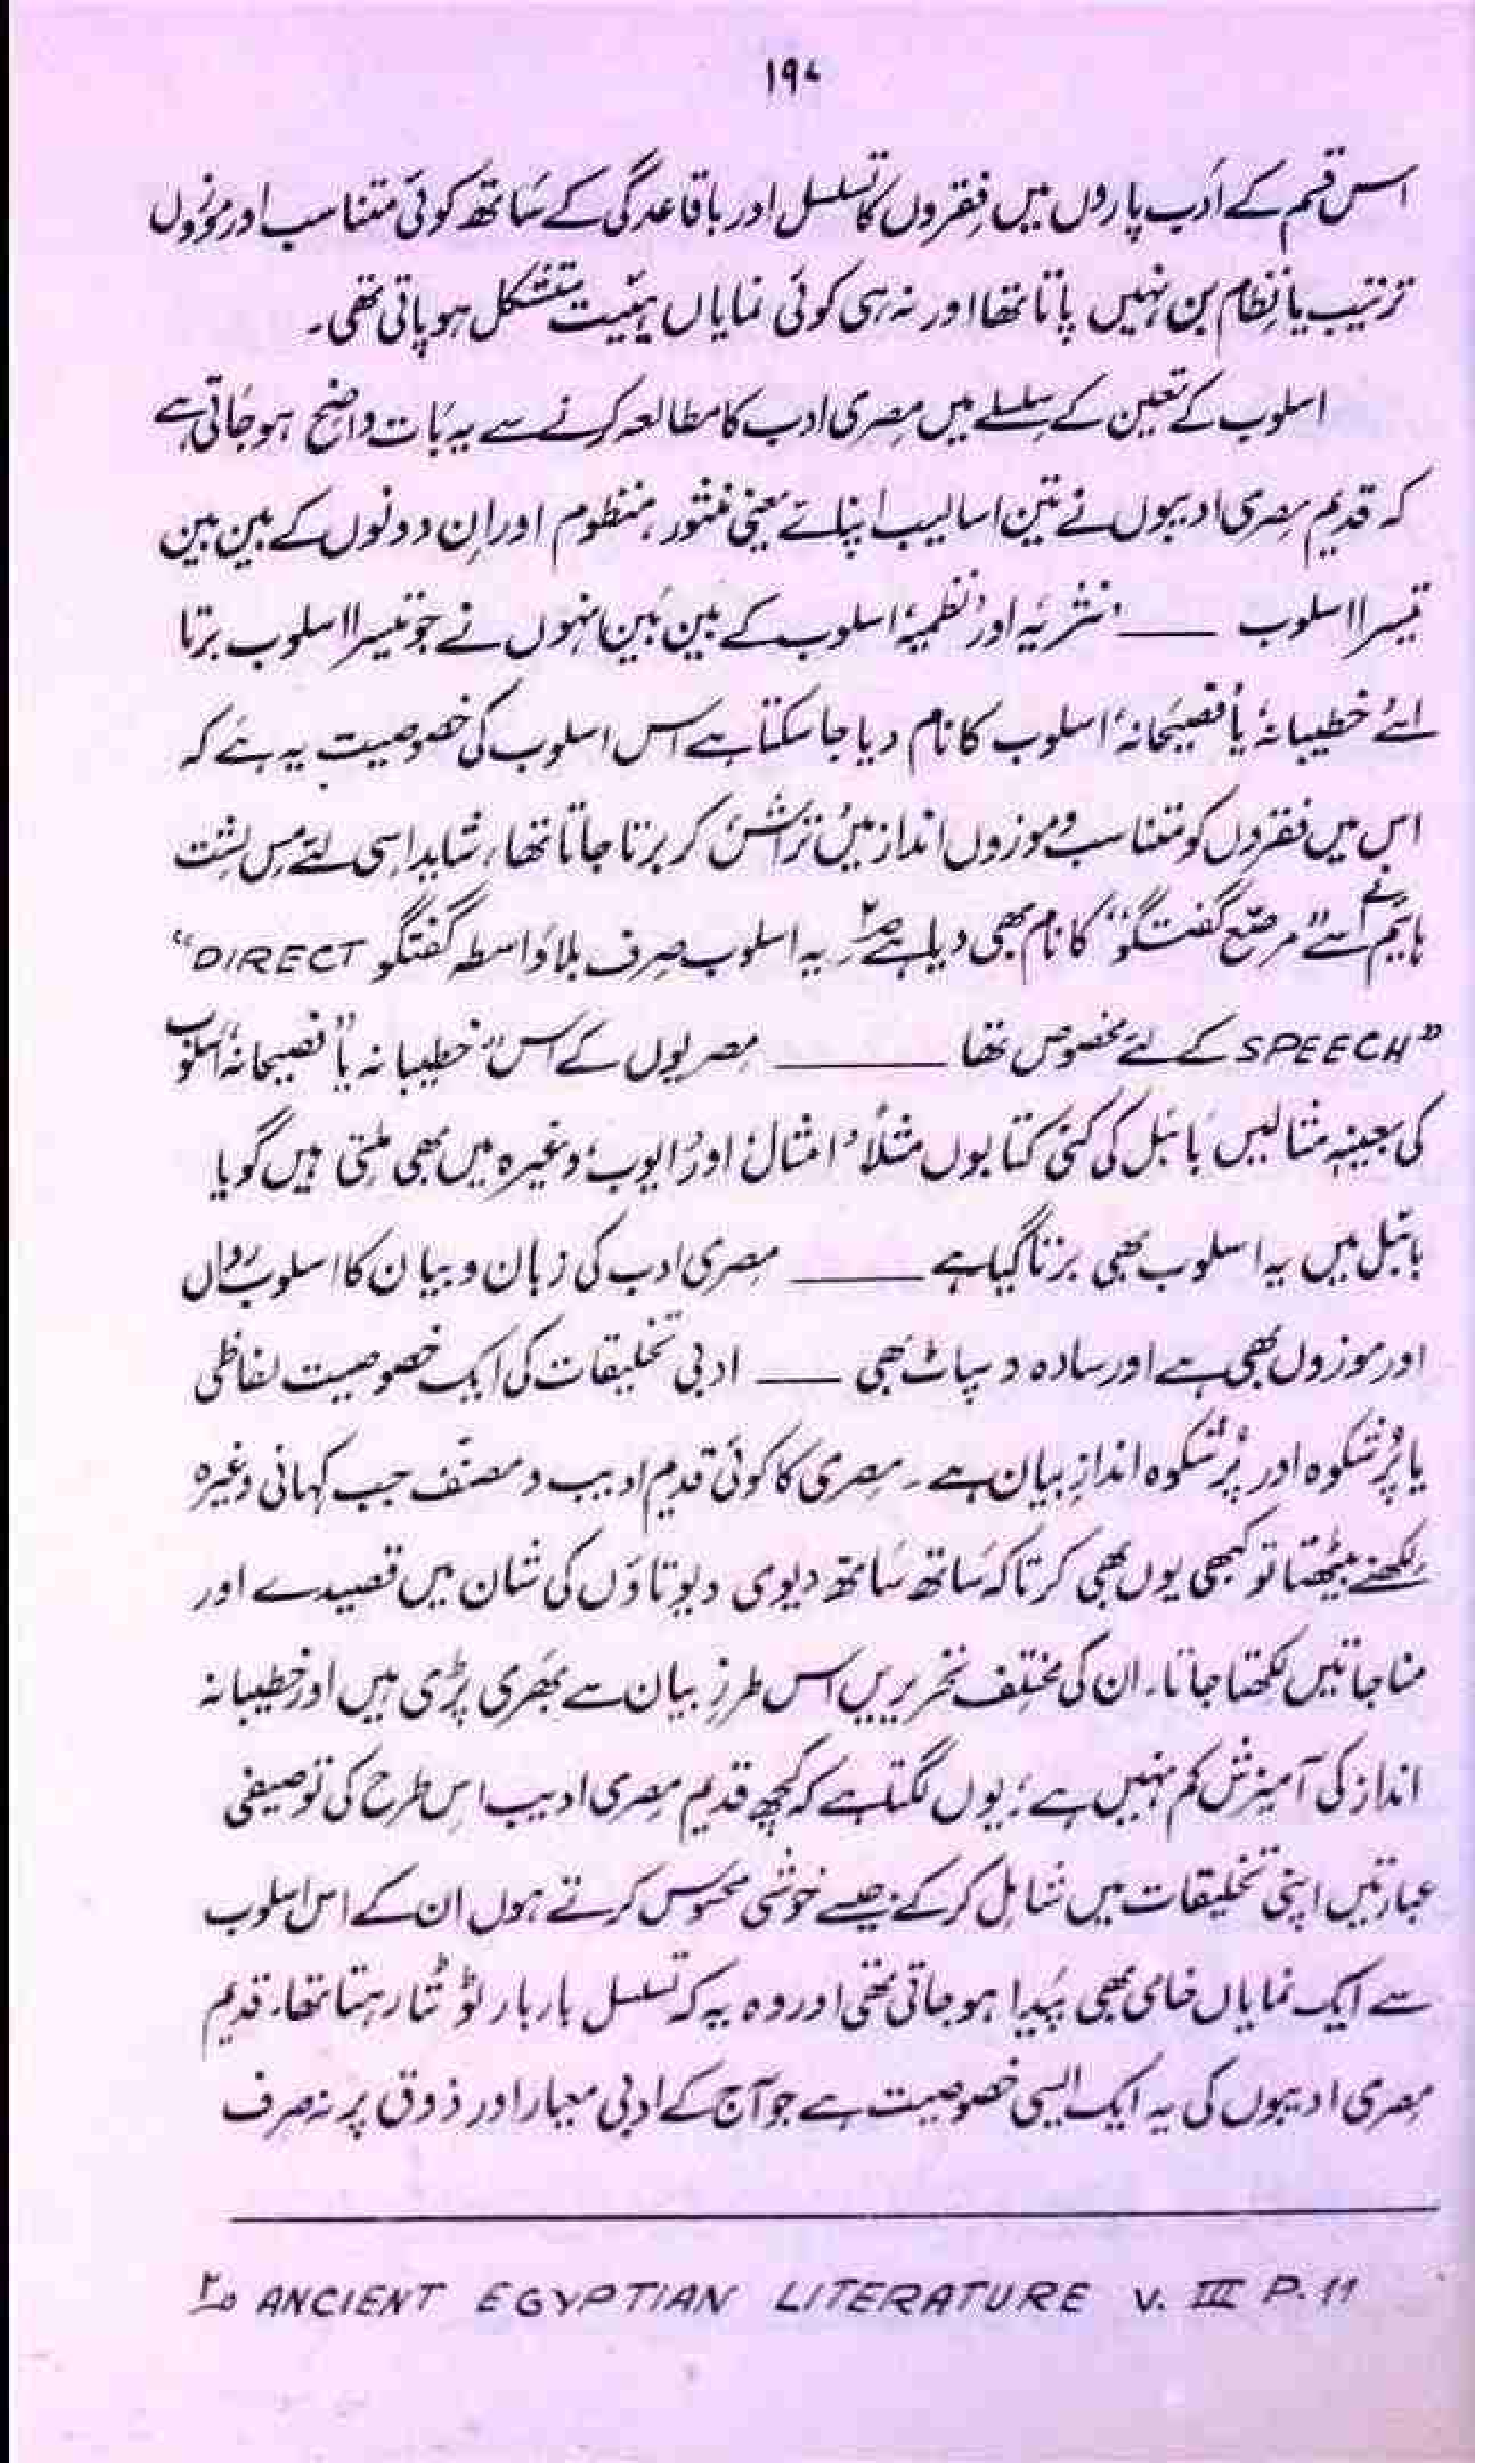 ۱۹۷
اس قسم کے ادَب پاروں میں فِقروں کا تسلسل اور باقاعدگی کے سَاتھ کوئی متناسب اور موزوں
ترتیب یا نِظام بن نہیں پاتا تھا اور نہ ہی کوئی نمایاں ہیئت متشکل ہو پاتی تھی۔
اسلوب کے تعین کے سِلسلے میں مِصری ادب کا مطالعہ کرنے سے یہ بَات واضح ہو جَاتی ہے
کہ قدیم مِصری ادیبوں نے تین اسالیب اپنائے یعنی منثور، منظوم اور اِن دونوں کے بین بین
تیسرا اسلوب ــــــ ’نثریہ‘ اور ’نظمیہ‘ اسلوب کے بین بَین انہوں نے جو تیسرا اسلوب برتا
اسے ’خطیبانہ‘ یا ’فصیحَانہ‘ اسلوب کا نام دیا جا سکتا ہے اس اسلوب کی خصوصیت یہ ہے کہ
اس میں فقروں کو متناسب و موزوں انداز میں تراش کر برتا جاتا تھا، شاید اسی لئے مِس لشت
ہائیم نے اسے ”مرصّع گفتگو“ کا نام بھی دیا ہے ۲؎۔ یہ اسلوب صِرف بلاوَاسطہ گفتگو DIRECT“
”SPEECH کے لئے مخصوص تھا ــــــ مِصریوں کے اس ”خطیبانہ یا ”فصیحانہ“ اسلوب
کی بعینہٖ مثالیں بَائبل کی کئی کتابوں مثلاً ’امثال‘ اور ’ایوب‘ وغیرہ میں بھی ملتی ہیں گویا
بائبل میں یہ اسلوب بھی برتا گیا ہے ــــــ مِصری ادب کی زبان و بیان کا اسلوب رواں
اور موزوں بھی ہے اور سادہ و سپاٹ بھی ــــــ ادبی تخلیقات کی ایک خصوصیت لفاظی
یا پُرشکوہ اور پُرشکوہ اندازِ بیان ہے۔ مصری کا کوئی قدیم ادیب و مصنّف جب کہانی وغیرہ
لکھنے بیٹھتا تو کبھی یوں بھی کرتا کہ سَاتھ سَاتھ دیوی دیوتاؤں کی شان میں قصیدے اور
مناجاتیں لکھتا جاتا۔ ان کی مختلف تحریریں اس طرزِ بیان سے بھَری پڑی ہیں اور خطیبانہ
انداز کی آمیزش کم نہیں ہے؛ یوں لگتا ہے کہ کچھ قدیم مِصری ادیب اِس طرح کی توصیفی
عبارتیں اپنی تخلیقات میں شامل کر کے جیسے خوشی محسوس کرتے ہوں ان کے اس اسلوب
سے ایک نمایاں خامی بھی پیدا ہو جاتی تھی اور وہ یہ کہ تسلسل بار بار ٹوٹتا رہتا تھا۔ قدیم
مِصری ادیبوں کی یہ ایک ایسی خصوصیت ہے جو آج کے ادبی معیار اور ذوق پر نہ صِرف
۲؎ ANCIENT EGYPTIAN LITERATURE V. III P. 11